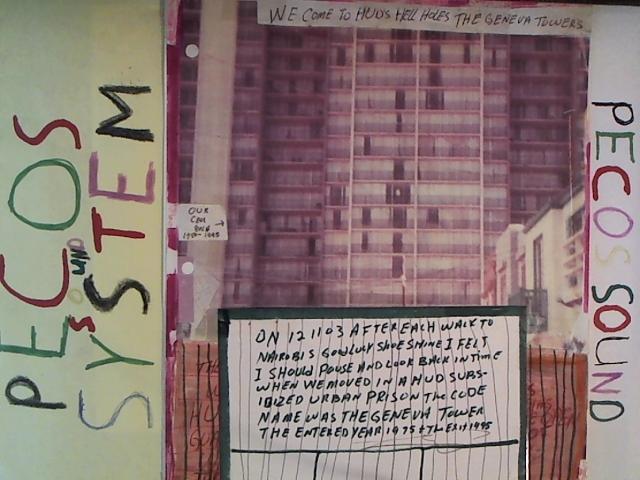 WE COME TO HUD'S HELL HOLES THE GENEVA TOWERS
PECOS
SOUND
SYSTEM
OUR
CELL
1980-1995
ON 12 11 03 AFTER EACH WALK TO
NAIROBI S GOW LUCK SHOE SHINE I FELT
I SHOULD PAUSE AND LOOK BACK IN TIME
WHEN WE MOVED IN A HUD SUBS-
IDIZED URBAN PRISON THE CODE
NAME WAS THE GENEVA TOWER
THE ENTERED YEAR 1975 & THE EXIT 1995
PECOS SOUND